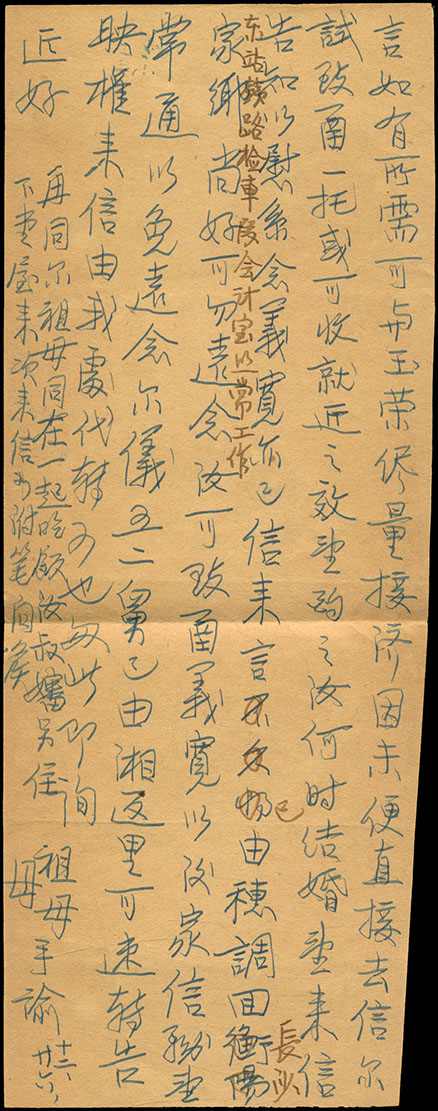 言如有所需可与玉荣侭量接济因未便直接去信尔
試致函一托或可收就近之效望酌之汝何时结婚望来信
告知以慰系念義寬前已信来言不久将已由穗調回衡陽
長沙
东站鉄路检車段会计室照常工作
家鄉尚好可勿遠念汝可致函義寬以後家信務望
常通以免遠念尔儀五二舅已由湘返里可速转告
映權来信由我處代转可也匆此即询
近好
祖母
母手諭
十二、廿六、
再同尔祖母同在一起吃飯汝叔嬸另住
下堂屋来次来信可附筆问候